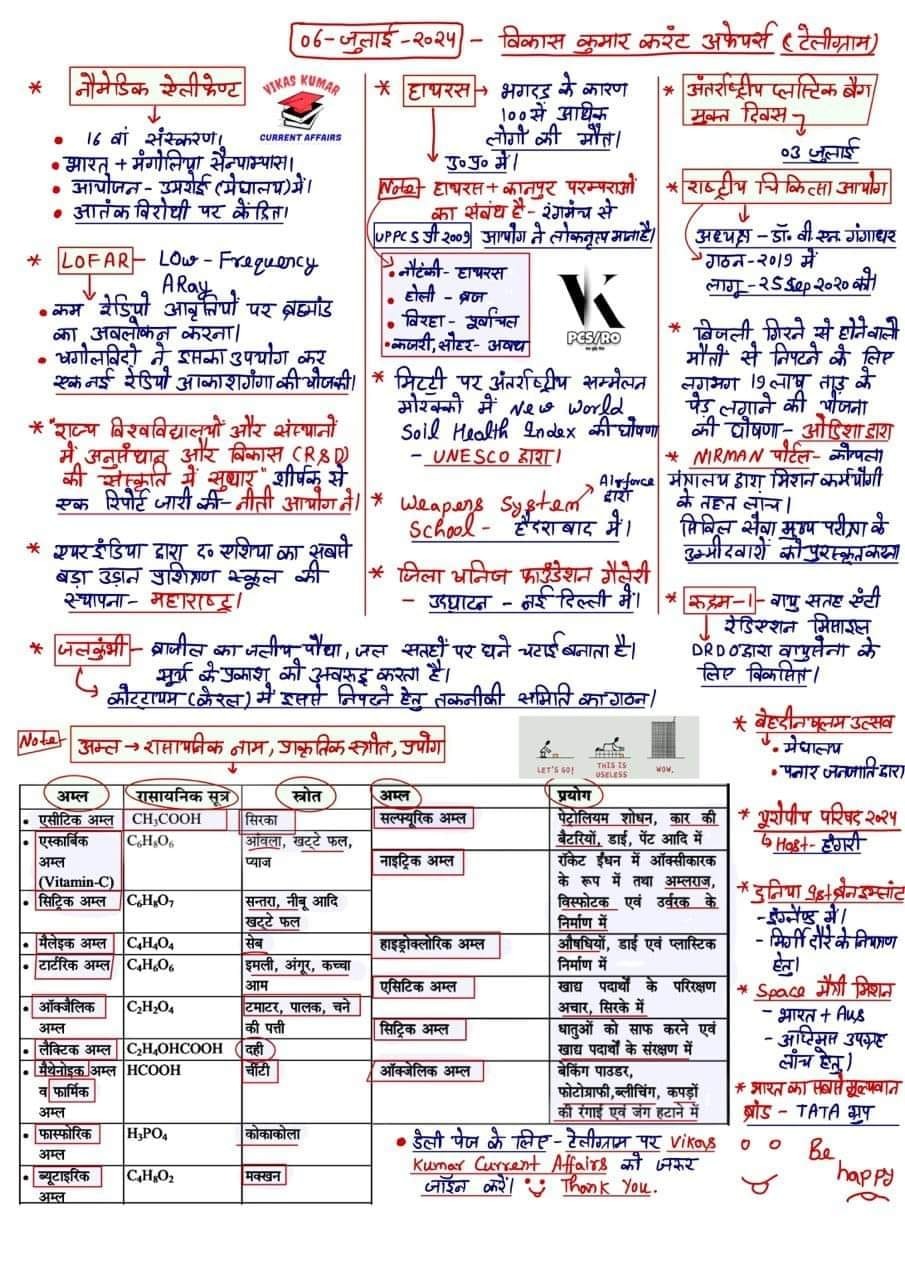 06-जुलाई-2024 - विकास कुमार करंट अफेयर्स (टेलीग्राम)
* नौमेडिक ऐलीफेण्ट
VIKAS KUMAR
CURRENT AFFAIRS
• 16 वां संस्करण।
• भारत + मंगोलिया सैनाभ्यास।
• आयोजन - उमरोई (मेघालय) में।
• आतंक विरोधी पर केंद्रित।
* LOFAR - Low - Frequency
ARay
• कम रेडियो आवृत्तियों पर ब्रह्मांड
का अवलोकन करना।
• खगोलविदों ने इसका उपयोग कर
एक नई रेडियो आकाशगंगा की खोज की।
* "राज्य विश्वविद्यालयों और संस्थानों
में अनुसंधान और विकास (R&D)
की संस्कृति में सुधार" शीर्षक से
एक रिपोर्ट जारी की - नीती आयोग ने।
* एयर इंडिया द्वारा द० एशिया का सबसे
बड़ा उड़ान प्रशिक्षण स्कूल की
स्थापना - महाराष्ट्र।
* हाथरस → भगदड़ के कारण
100 से अधिक
लोगों की मौत।
उ०प्र० में।
Note - हाथरस + कानपुर परम्पराओं
का संबंध है - रंगमंच से
UPPCS प्री 2009 आयोग ने लोकनृत्य माना है।
• नौटंकी - हाथरस
• होली - ब्रज
• बिरहा - पूर्वांचल
• कजरी, सोहर - अवध
VK
PCS/RO
* मिट्टी पर अंतर्राष्ट्रीय सम्मेलन
मोरक्को में New World
Soil Health Index की घोषणा
- UNESCO द्वारा।
* Weapens System
Airforce
द्वारा
School - हैदराबाद में।
* जिला खनिज फाउंडेशन गैलेरी
- उद्घाटन - नई दिल्ली में।
* अंतर्राष्ट्रीय प्लास्टिक बैग
मुक्त दिवस
03 जुलाई
* राष्ट्रीय चिकित्सा आयोग
अध्यक्ष - डॉ. बी. एन. गंगाधर
गठन - 2019 में
लागू - 25 Sep 2020 को।
* बिजली गिरने से होने वाली
मौतों से निपटने के लिए
लगभग 19 लाख ताड़ के
पेड़ लगाने की योजना
की घोषणा - ओडिशा द्वारा
* NIRMAN पोर्टल - कोयला
मंत्रालय द्वारा मिशन कर्मयोगी
के तहत लांच।
सिविल सेवा मुख्य परीक्षा के
उम्मीदवारों को पुरस्कृत करना
* रुद्रम-1 - वायु सतह एंटी
रेडिएशन मिसाइल
DRDO द्वारा वायुसेना के
लिए विकसित।
* जलकुंभी - ब्राजील का जलीय पौधा, जल सतहों पर घने चटाई बनाता है।
सूर्य के प्रकाश को अवरुद्ध करता है।
कोट्टायम (केरल) में इससे निपटने हेतु तकनीकी समिति का गठन।
Note - अम्ल → रासायनिक नाम, प्राकृतिक स्त्रोत, प्रयोग
LET'S GO!
THIS IS
USELESS
WOW.
अम्ल रासायनिक सूत्र स्त्रोत
• एसीटिक अम्ल CH₃COOH सिरका
• एस्कार्बिक C₆H₈O₆ आंवला, खट्टे फल,
अम्ल प्याज
(Vitamin-C)
• सिट्रिक अम्ल C₆H₈O₇ सन्तरा, नीबू आदि
खट्टे फल
• मैलेइक अम्ल C₄H₄O₄ सेब
• टार्टरिक अम्ल C₄H₆O₆ इमली, अंगूर, कच्चा
आम
• ऑक्जैलिक C₂H₂O₄ टमाटर, पालक, चने
अम्ल की पत्ती
• लैक्टिक अम्ल C₂H₄OHCOOH दही
• मैथेनोइक अम्ल HCOOH चींटी
व फार्मिक
अम्ल
• फास्फोरिक H₃PO₄ कोकाकोला
अम्ल
• ब्यूटाइरिक C₄H₈O₂ मक्खन
अम्ल
अम्ल प्रयोग
सल्फ्यूरिक अम्ल पेट्रोलियम शोधन, कार की
बैटरियों, डाई, पेंट आदि में
नाइट्रिक अम्ल रॉकेट ईंधन में ऑक्सीकारक
के रूप में तथा अम्लराज,
विस्फोटक एवं उर्वरक के
निर्माण में
हाइड्रोक्लोरिक अम्ल औषधियों, डाई एवं प्लास्टिक
निर्माण में
एसिटिक अम्ल खाद्य पदार्थों के परिरक्षण
अचार, सिरके में
सिट्रिक अम्ल धातुओं को साफ करने एवं
खाद्य पदार्थों के संरक्षण में
ऑक्जेलिक अम्ल बेकिंग पाउडर,
फोटोग्राफी,ब्लीचिंग, कपड़ों
की रंगाई एवं जंग हटाने में
• डेली पेज के लिए - टेलीग्राम पर Vikas
Kumar Current Affairs को जरूर
जॉइन करें। Thank You.
* बेहदीनखलम उत्सव
• मेघालय
• पनार जनजाति द्वारा
* यूरोपीय परिषद 2024
Host - हंगरी
* दुनिया 1st ब्रेन इम्प्लांट
- इंग्लैण्ड में।
- मिर्गी दौरे के नियंत्रण
हेतु।
* Space मैत्री मिशन
- भारत + Aus
- ऑप्टिमस उपग्रह
लांच हेतु।
* भारत का सबसे मूल्यवान
ब्रांड - TATA ग्रुप
Be
happy